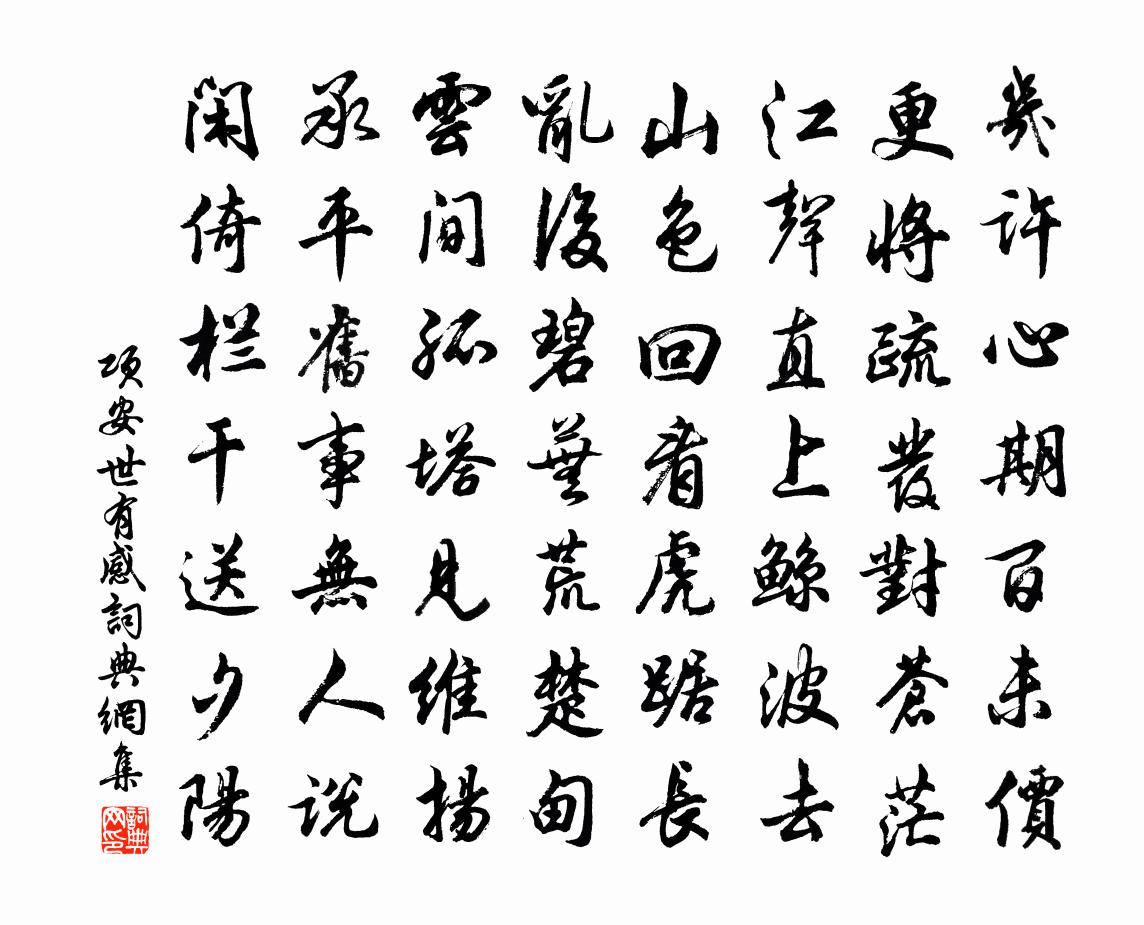 幾許心期百未價
更將疏發對蒼茫
江聲直上鯨波去
山色回看虎踞長
亂後碧蕪荒楚甸
雲間孤塔見維揚
承平舊事無人說
閑倚栏干送夕陽
项安世有感詞典網集
詞典网印